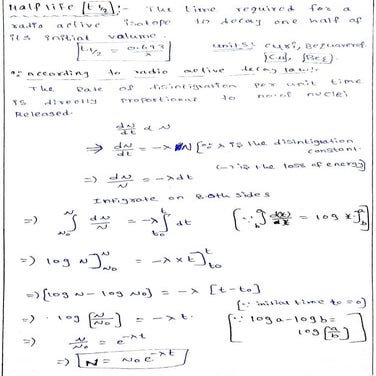 Half life [t 1/2] :- The time required for a
radio active isotope to decay one half of
its initial volume.
[t1/2 = 0.693/λ] units:
∵ according to radio active decay law:-
The Rate of disintigration per unit time
is directly proportional to no. of nuclei
Released.
dN/dt ∝ N
⇒ dN/dt = -λN [∵ λ is the disintigration
constant.
=) dN/N = -λdt (-) is the loss of energy]
Intigrate on Both sides
=) ∫ N₀ N dN/N = -λ ∫ t₀ t dt
=) log N]N₀ N = -λ × t]t₀ t
=) [log N - log N₀] = -λ [t-t₀]
[∵ initial time t₀ = 0]
=) log [N/N₀] = -λt. [∵ log a - log b = log(a/b)]
=) N/N₀ = e^-λt
=) [N = N₀e^-λt]